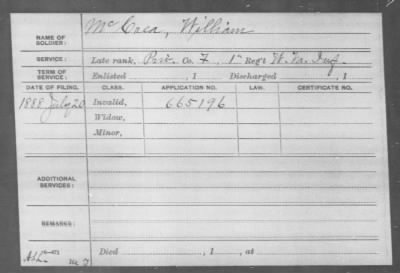 NAME OF SOLDIER: McCrea, William
SERVICE: Late rank, Priv. Co. F, 1st Reg't W. Va. Inf.
TERM OF SERVICE: Enlisted , 1 Discharged , 1
DATE OF FILING. CLASS. APPLICATION NO. LAW. CERTIFICATE NO.
1888 July 20 Invalid, 665196
Widow,
Minor,
ADDITIONAL SERVICES:
REMARKS:
Died , 1 , at